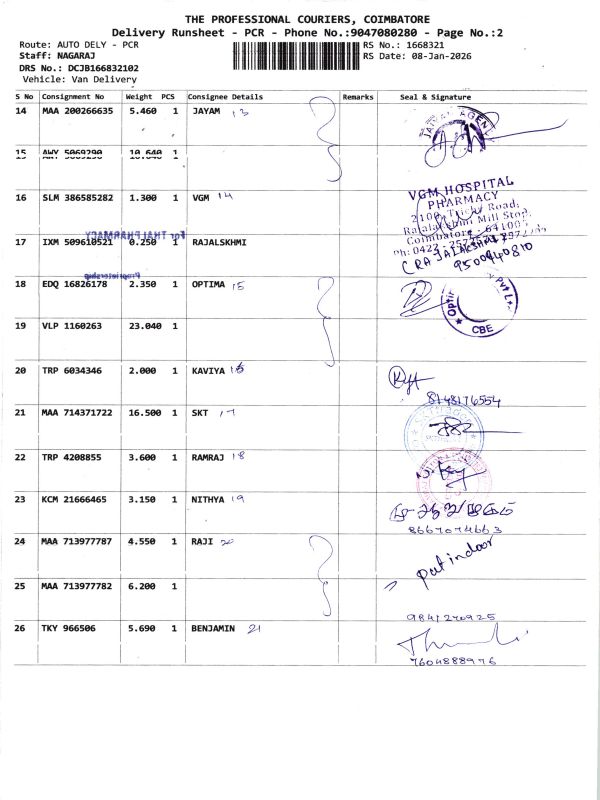 THE PROFESSIONAL COURIERS, COIMBATORE
Delivery Runsheet - PCR - Phone No.:9047080280 - Page No.:2
Route: AUTO DELY - PCR
RS No.: 1668321
Staff: NAGARAJ
RS Date: 08-Jan-2026
DRS No.: DCJB166832102
Vehicle: Van Delivery
S No Consignment No Weight PCS Consignee Details Remarks Seal & Signature
14 MAA 200266635 5.460 1 JAYAM 13
15 AWY 5069290 10.640 1
16 SLM 386585282 1.300 1 VGM 14
VGM HOSPITAL
PHARMACY
2100, Trichy Road,
Rajalakshmi Mill Stop,
Coimbatore - 641005
Ph: 0422
For THAI PHARMACY
17 IXM 509610521 0.250 1 RAJALSKHMI
CRAJALAKSHMI
9500940810
Proprietorship
18 EDQ 16826178 2.350 1 OPTIMA 15
Pvt Lt
CBE
19 VLP 1160263 23.040 1
20 TRP 6034346 2.000 1 KAVIYA 16
8148176554
21 MAA 714371722 16.500 1 SKT 17
22 TRP 4208855 3.600 1 RAMRAJ 18
23 KCM 21666465 3.150 1 NITHYA 19
8667074663
24 MAA 713977787 4.550 1 RAJI 20
Pat indoor
25 MAA 713977782 6.200 1
9841270925
26 TKY 966506 5.690 1 BENJAMIN 21
7604888976